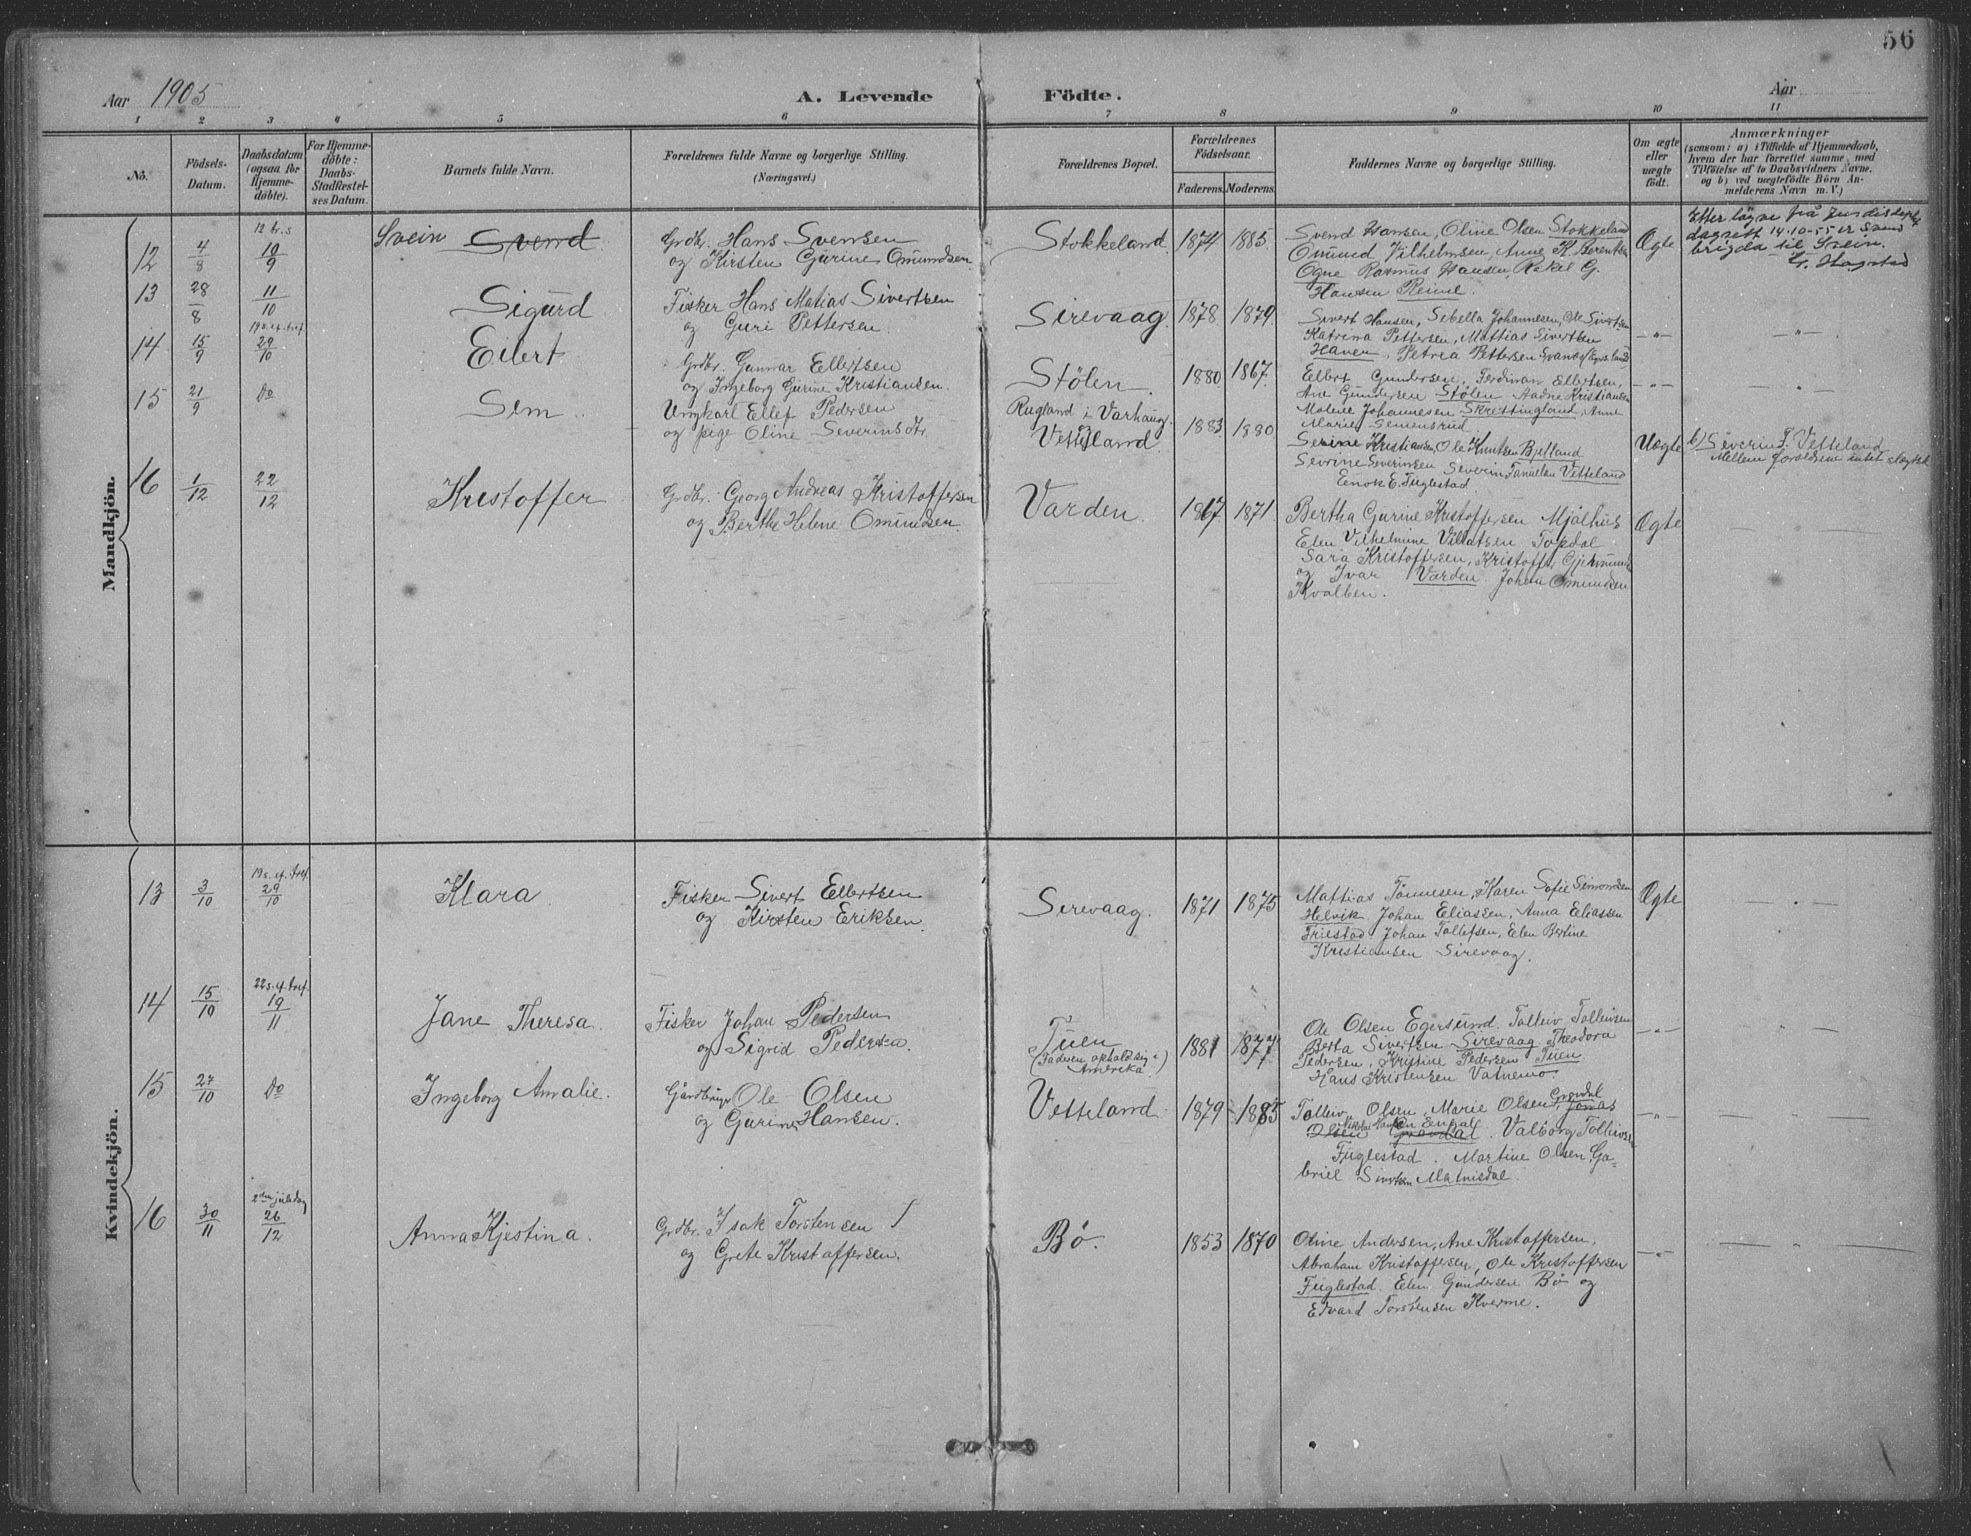 56
Aar 1905
A. Levende Födte.
Aar
1 2 3 4 5 6 7 8 9 10 11
No.
Födsels-Datum.
Daabsdatum (ogsaa for Hjemme-döbte).
For Hjemme-döbte: Daabs-Stadfæstel-ses Datum.
Barnets fulde Navn.
Forældrenes fulde Navne og borgerlige Stilling.
(Næringsvei.)
Forældrenes Bopæl.
Forældrenes Födselsaar.
Faderens. Moderens.
Faddernes Navne og borgerlige Stilling.
Om ægte eller uægte födt.
Anmærkninger
(saasom: a) i Tilfælde af Hjemmedaab, hvem der har forrettet samme, med Tilföielse af to Daabsvidners Navne, og b) ved uægtefödte Börn An-melderens Navn m. V.)
Mandkjön.
12 4/8 12 s. 10/9 Svein Svend
Grdbr. Hans Svensen
og Kirsten Gurine Omundsen
Stokkeland 1874 1885.
Svend Hansen, Oline Olsen Stokkeland
Omund Vilhelmsen, Anne K. Berentsen
Ogne Rasmus Hansen, Rakel G.
Hansen Reime.
Ægte
Etter løyve frå
dagsett 14-10-55 er
brigda til Svein.
13 28/8 11/10 Sigurd
Fisker Hans Matias Sivertsen
og Guri Pettersen.
Sirevaag 1878 1879.
Sivert Hansen, Sebella Johannesen, Ole Sivertsen
Katrina Pettersen, Mattias Sivertsen
Haven, Petrea Pettersen
— " —
14 15/9 19 s. ef. tref. 29/10 Eilert
Grdbr. Gunnar Ellertsen
og Ingeborg Gurine Kristiansen.
Stølen 1880 1867.
Ellert Gundersen, Ferdinan Ellertsen,
Ane Gundersen Stølen Aadne Kristiansen
Malene Johannesen Skrettingland, Anne
Marie
— " —
15 21/9 Do Sem
Ungkarl Ellef Pedersen
og pige Oline Severinsdtr.
Rugland i Varhaug
Vetteland. 1883 1880
Serine Kristiansen, Ole Knutsen Bjelland
Sevrine Severinsen Severin Tanielsen Vetteland
Enok E. Fuglestad.
Uægte
b) Severin T. Vetteland
Mellem forældrene intet slægtsk.
16 1/12 22/12 Kristoffer
Grdbr. Georg Andreas Kristoffersen
og Berthe Helene Omundsen.
Varden. 1867. 1871
Bertha Gurine Kristoffersen Mjølhus
Elen Vilhelmine Topdal
Sara Kristoffersen, Kristoffer, Gjermund
og Ivar Varden. Johan Omundsen
Kvalben.
Ægte
Kvindekjön.
13 3/10 19 s. ef. tref. 29/10 Klara
Fisker Sivert Ellertsen
og Kirsten Eriksen.
Sirevaag. 1871 1875
Mattias Tønnesen, Karen Sofie Simonsen
Helvik Johan Eliassen, Anna Eliassen
Friestad Johan Tollefsen, Elen Bertine
Kristiansen Sirevaag.
Ægte
14 15/10 22 s. ef. tref. 19/11 Jane Theresa.
Fisker Johan Pedersen
og Sigrid Pedersen.
Tuen
(Faderen opholdt sig i Amerika.) 1881 1877
Ole Olsen Egersund. Tolleiv Tolleivsen
Berta Sivertsen Sirevaag Theodora
Pedersen, Kristine Pedersen Tuen
Hans Kristensen Vatnemo.
— " —
15 27/10 Do Ingeborg Amalie.
Gårdbruger Ole Olsen
og Gurine Hansen.
Vetteland 1879 1885
Tolleiv Olsen, Marie Olsen, Grøndal Jonas
Olsen Grøndal. Valborg Tolleivsen
Fuglestad. Martine Olsen, Ga-
briel Sivertsen Matnisdal.
— " —
16 30/11 2den juledag 26/12 Anna Kjestina.
Grdbr. Isak Torstensen
og Grete Kristoffersen.
Bø. 1853 1870
Oline Andersen, Ane Kristoffersen,
Abraham Kristoffersen, Ole Kristoffersen
Fuglestad. Elen Gundersen Bø og
Edvard Torstensen Kverme.
— " —